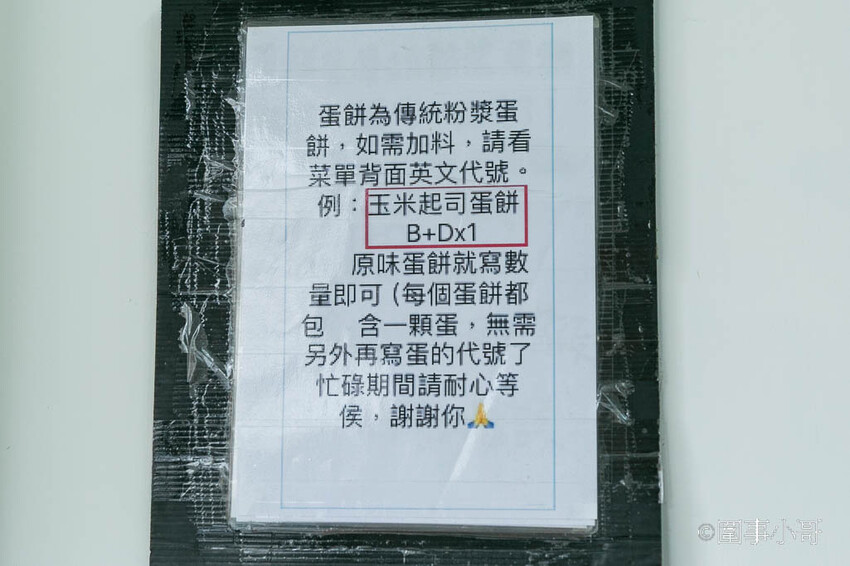 蛋餅為傳統粉漿蛋
餅，如需加料，請看
菜單背面英文代號。
例：玉米起司蛋餅
B+Dx1
原味蛋餅就寫數
量即可 (每個蛋餅都
包 含一顆蛋，無需
另外再寫蛋的代號了
忙碌期間請耐心等
侯，謝謝你🙏
©圍事小哥